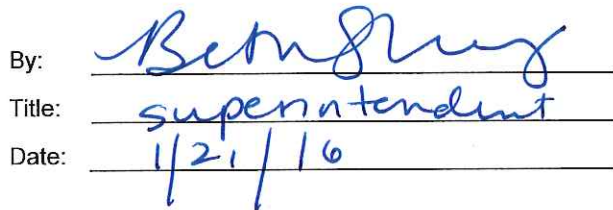 By: Beth
Title: superintendent
Date: 1/21/16